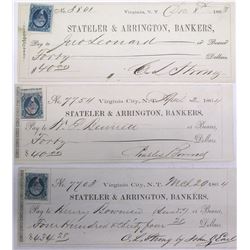 No. 3801 Virginia, N.T. Dec 8th 1863
STATELER & ARRINGTON, BANKERS,
Pay to Jno Leonard or Bearer
Forty Dollars,
$40.00
No. 7754 Virginia City, N.T. April 2 1864
STATELER & ARRINGTON, BANKERS,
Pay to or Bearer,
Forty Dollars,
$40.00 Charles Bonner
No. 7703 Virginia City, N.T. Mch 20 1864
STATELER & ARRINGTON, BANKERS,
Pay to Henry or Bearer,
Four Hundred & thirty four Dollars,
$434